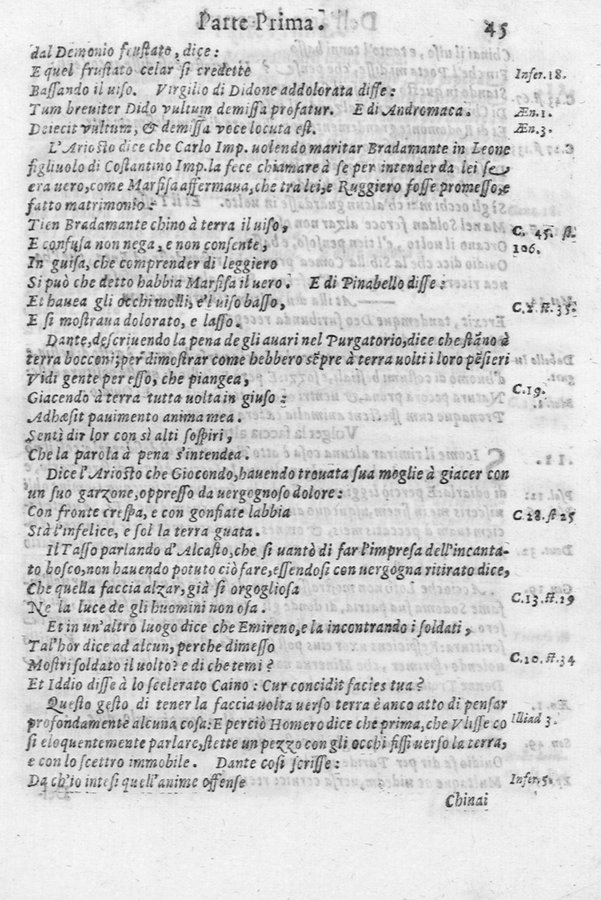 Parte Prima. 45
dal Demonio frustato, dice:
E quel frustato celar si credette Infer. 18.
Bassando il uiso. Virgilio di Didone addolorata disse:
Tum breuiter Dido vultum demissa profatur. E di Andromaca. Æn. 1.
Deiecit vultum, & demissa voce locuta est. Æn. 3.
L'Ariosto dice che Carlo Imp. uolendo maritar Bradamante in Leone
figliuolo di Costantino Imp. la fece chiamare à se per intender da lei se
era uero, come Marfisa affermaua, che tra lei, e Ruggiero fosse promesso, e
fatto matrimonio:
Tien Bradamante chino à terra il uiso, C. 45. st.
E confusa non nega, e non consente, 106.
In guisa, che comprender di leggiero
Si può che detto habbia Marfisa il uero. E di Pinabello disse:
Et hauea gli occhi molli, e'l uiso basso, C. 2. st. 35.
E si mostraua dolorato, e lasso.
Dante, descriuendo la pena de gli auari nel Purgatorio, dice che stãno à
terra bocconi; per dimostrar come hebbero sẽpre à terra uolti i loro pẽsieri
Vidi gente per esso, che piangea, C. 19.
Giacendo à terra tutta uolta in giuso:
Adhæsit pauimento anima mea.
Sentì dir lor con sì alti sospiri,
Che la parola à pena s'intendea.
Dice l'Ariosto che Giocondo, hauendo trouata sua moglie à giacer con
un suo garzone, oppresso da uergognoso dolore:
Con fronte crespa, e con gonfiate labbia C. 28. st 25
Stà l'infelice, e sol la terra guata.
Il Tasso parlando d'Alcasto, che si uantò di far l'impresa dell'incanta-
to bosco, non hauendo potuto ciò fare, essendosi con uergogna ritirato dice,
Che quella faccia alzar, già sì orgogliosa C. 13. st. 19
Ne la luce de gli huomini non osa.
Et in un'altro luogo dice che Emireno, e la incontrando i soldati,
Tal'hor dice ad alcun, perche dimesso
Mostri soldato il uolto? e di che temi? C. 10. st. 34
Et Iddio disse à lo scelerato Caino: Cur concidit facies tua?
Questo gesto di tener la faccia uolta uerso terra è anco atto di pensar
profondamente alcuna cosa: E perciò Homero dice che prima, che Vlisse co Illiad 3.
sì eloquentemente parlare, stette un pezzo con gli occhi fissi uerso la terra,
e con lo scettro immobile. Dante così scrisse:
Da ch'io intesi quell'anime offense Infer. 5.
Chinai